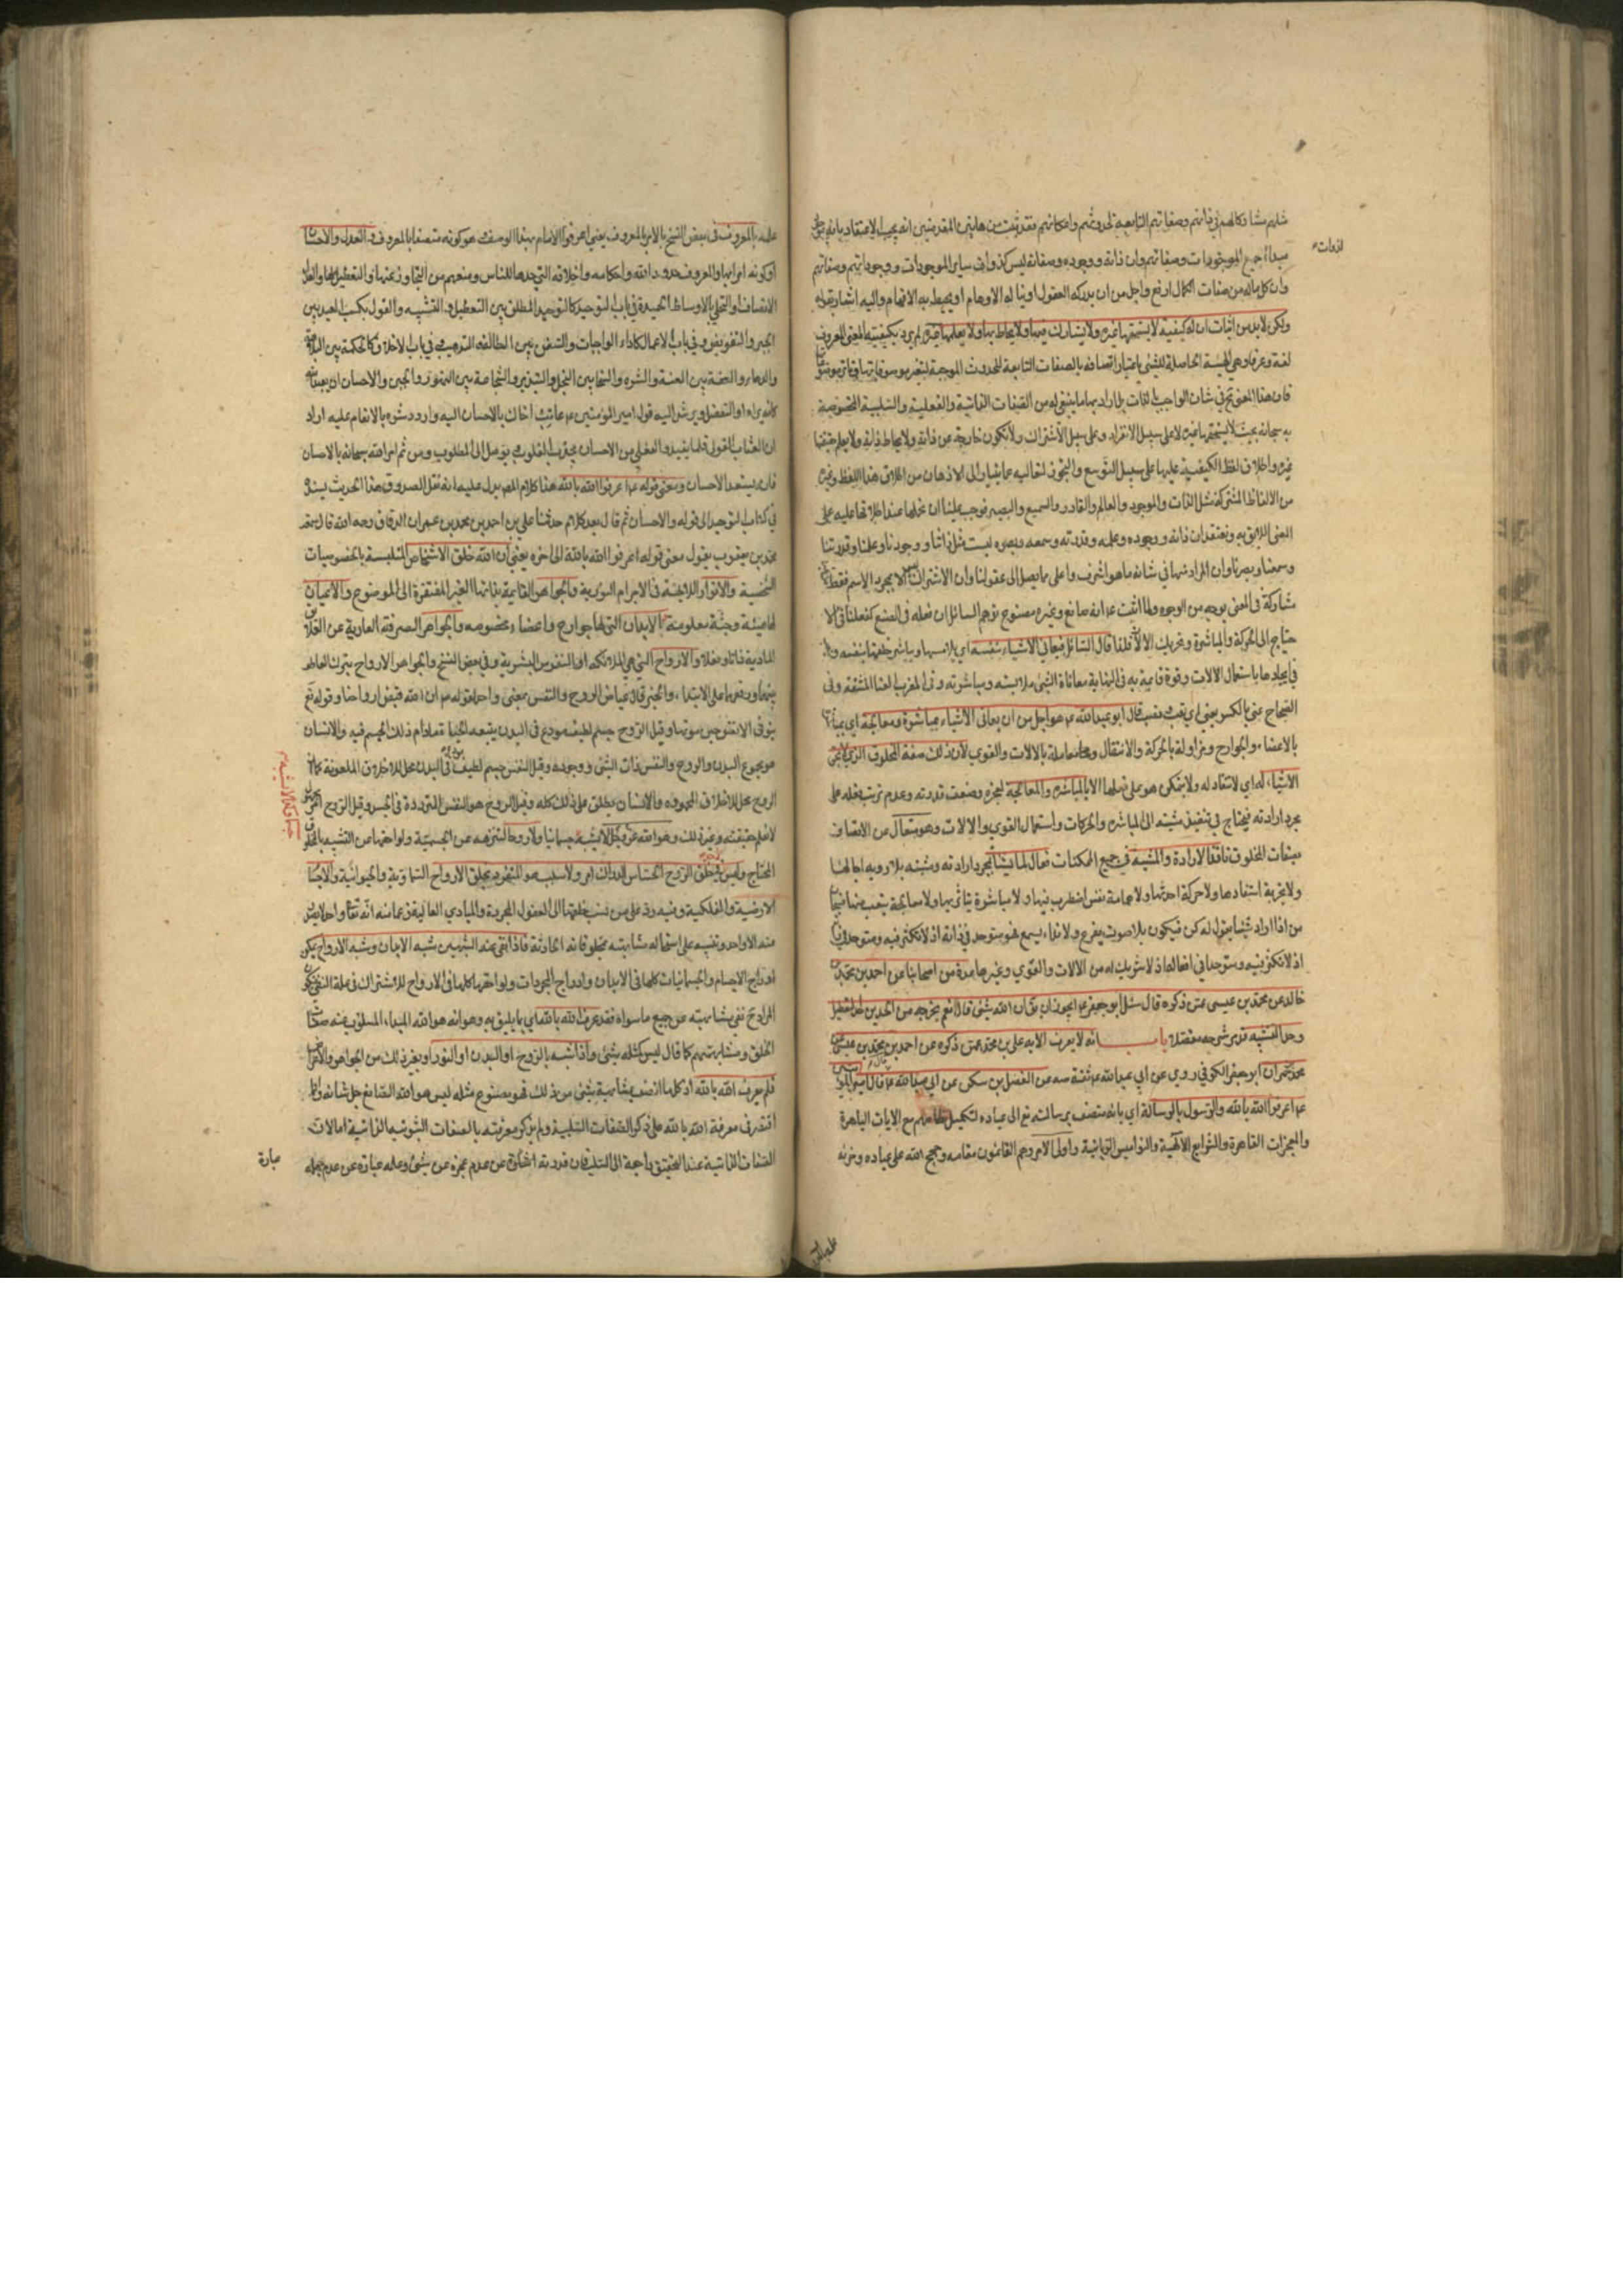 مبدأ جميع الموجودات وصفاتهم وان ذاته ووجوده وصفاته ليس كذوات ساير الموجودات ووجوداتهم وصفاتهم
وان كل ماله من صفات الكمال ارفع واجل من ان يدركه العقول او يناله الاوهام او يحيط به الافهام واليه اشار بقوله
ولكن لابد من اثبات ان له كيفية لا يستحقها غيره ولا يشارك فيها ولا يحاط بها ولا يعلمها غيره لم يرد بكيفيته المعنى المعروف
لغة وعرفا وهي الهيئة الحاصلة للشيء باعتبار اتصافه بالصفات التابعة للحدوث الموجبة لتغير موصوفاتها
فان هذا المعنى في شان الواجب بالذات بل اراد بها ما ينبغي له من الصفات الذاتية والفعلية والسلبية المخصوصة
به سبحانه بحيث لا يستحقها غيره لا على سبيل الانفراد وعلى سبيل الاشتراك ولا تكون خارجة عن ذاته ولا يحاط ذاته ولا يعلم حقيقتها
غيره واطلاق لفظ الكيفية عليها على سبيل التوسع والتجوز لتعاليه عما يتبادر الى الاذهان من اطلاق هذا اللفظ وغيره
من الالفاظ المشتركة مثل الذات والموجود والعالم والقادر والسميع والبصير فوجب علينا ان نحملها عند اطلاقها عليه على
المعنى اللايق به ونعتقد ان ذاته ووجوده وعلمه وقدرته وسمعه وبصره ليست مثل ذاتنا ووجودنا وعلمنا وقدرتنا
وسمعنا وبصرنا وان المراد منها في شانه ما هو اشرف واعلى مما يصل الى عقولنا وان الاشتراك ليس الا بمجرد الاسم فقط
مشاركة في المعنى بوجه من الوجوه ولما اثبت ع انه صانع وغيره مصنوع توهم السائل ان فعله في الصنع كفعلنا في الا
حتياج الى الحركة والمباشرة وتحريك الالات فلذا قال السائل فيعاني الاشياء بنفسه اي يلامسها ويباشر خلقها بنفسه
في ايجادها باستعمال الالات وقوة قايمة به في النهاية معاناة الشيء ملابسته ومباشرته وفي المغرب العنا المشقة وفي
الصحاح عني بالكسر يعني اي تعب ونصب قال ابو عبد الله ع هو اجل من ان يعاني الاشياء بمباشرة ومعالجة اي
بالاعضاء والجوارح ومزاولة بالحركة والانتقال ومعاملة بالالات والقوى لان ذلك صفة المخلوق الذي لا تجيء
الاشياء له اي لا تنقاد له ولا يتمكن هو على فعلها الا بالمباشرة والمعالجة لعجزه وضعف قدرته وعدم ترتب فعله على
مجرد ارادته فيحتاج في تنفيذ مشيته الى المباشرة والحركات واستعمال القوى والالات وهو متعال عن الاتصاف
بصفات المخلوق نافذ الارادة والمشية في جميع الممكنات فعال لما يشاء بمجرد ارادته ومشيته بلا روية اجالها
ولا تجربة استفادها ولا حركة احدثها ولا همامة نفس اضطرب فيها ولا مباشرة يتاثر بها ولا معالجة يتعب منها
من اذا اراد شيئا يقول له كن فيكون بلا صوت يقرع ولا نداء يسمع فهو متوحد في ذاته اذ لا تكثر فيه ومتوحد في
اذ لا تكثر فيه ومتوحد في افعاله اذ لا شريك له من الالات والقوى وغيرها عدة من اصحابنا عن احمد بن محمد بن
خالد عن محمد بن عيسى عمن ذكره قال سئل ابو جعفر ع ايجوز ان يقال ان الله شيء قال نعم يخرجه من الحدين حد التعطيل
وحد التشبيه قد مر شرحه مفصلا باب انه لا يعرف الا به علي بن محمد عمن ذكره عن احمد بن محمد بن عيسى عن
محمد بن حمران ابو جعفر الكوفي روي عن ابي عبد الله ع ثقة عن الفضل بن سكن عن ابي عبد الله ع قال قال امير المؤ
ع اعرفوا الله بالله والرسول بالرسالة اي بانه متصف برسالته تع الى عباده لتكميل مع الايات الباهرة
والمعجزات القاهرة والشرايع الالهية والنواميس الربانية واولي الامر وهم القائمون مقامه وحجج الله على عباده
بالمعروف في بعض النسخ بالامر بالمعروف يعني اعرفوا الامام بهذا الوصف وهو كونه متصفا بالمعروف والعدل والاحسان
او كونه امرا بها والمعروف حدود الله واحكامه واخلاقه التي حدها للناس ومنعهم من التجاوز عنها والتعطيل لها والعدل
الانصاف والتحلي بالاوساط الحميدة في باب التوحيد كالتوحيد المطلق بين التعطيل والتشبيه والقول بكسب العبد بين
الجبر والتفويض وفي باب الاعمال كاداء الواجبات والسنن بين البطالة والترهب وفي باب الاخلاق كالحكمة بين البلاهة
والدهاء والعفة بين العنة والشره والسخا بين البخل والتبذير والشجاعة بين التهور والجبن والاحسان ان يعبد الله
كانه يراه او التفضل ويرشد اليه قول امير المؤمنين ع عاتب اخاك بالاحسان اليه واردد شره بالانعام عليه اراد
ان العتاب القولي قلما يفيد والفعلي من الاحسان يجذب القلوب ويوصل الى المطلوب ومن ثم امر الله سبحانه بالاحسان
ومعنى قوله ع اعرفوا الله بالله هذا كلام المص يدل عليه انه نقل الصدوق هذا الحديث بسنده
في كتاب التوحيد الى قوله والاحسان ثم قال بعد كلام حدثنا علي بن احمد بن محمد بن عمران الدقاق رحمه الله قال سمعت
محمد بن يعقوب يقول معنى قوله اعرفوا الله بالله الى اخره يعني ان الله خلق الاشخاص المتلبسة بالخصوصيات
الشخصية والانوار اللايحة في الاجرام النورية والجواهر القايمة بذاتها الغير المفتقرة الى الموضوع والاعيان
لها هيئة وجثة معلومة فالاعيان الابدان التي لها جوارح واعضاء مخصوصة والجواهر الصرفة العارية عن العلايق
المادية ذاتا وفعلا والارواح التي هي الملائكة او النفوس البشرية وفي بعض النسخ والجواهر الارواح بترك العاطف
بينهما ورفعهما على الابتداء والخبر قال عياض الروح والنفس بمعنى واحد لقوله ص ان الله قبض ارواحنا وقوله تع
يتوفى الانفس حين موتها وقيل الروح جسم لطيف مودع في البدن يتبعه الحياة مادام ذلك الجسم فيه والانسان
هو مجموع البدن والروح والنفس ذات الشيء ووجوده وقيل النفس جسم لطيف مودع في البدن محل للاخلاق الملعونة كما ان
الروح محل للاخلاق المحمودة والانسان يطلق على ذلك كله وقيل الروح هو النفس المترددة في الجسد وقيل الروح
لا نعلم حقيقته وغير ذلك وهو الله عز وجل لا يشبه جسمانيا ولا روحا لتنزهه عن الجسمية ولواحقها من التشبه بالخلق
المحتاج وليس لاحد في خلق الروح الحساس الدراك امر ولا سبب هو المتفرد بخلق الارواح السماوية والحيوانية والاجسام
الارضية والفلكية وفيه رد على من ينسب خلقها الى العقول المجردة والمبادي العالية زعما منه انه تعالى واحد لا يصدر
منه الا واحد وتنبيه على استحالة مشابهته بمخلوقاته الحادثة فاذا نفى عنه الشبهين شبه الابدان وشبه الارواح
ادراج الاجسام والجسمانيات كلها في الابدان وادراج المجردات ولواحقها كلها في الارواح للاشتراك في علة النفي
المراد ح نفي مشابهته عن جميع ما سواه فقد عرف الله بالله اي بما يليق به وهو انه هو الله المبدأ المسلوب عنه صفات
الخلق ومشابهتهم كما قال ليس كمثله شيء واذا شبه بالروح او البدن او النور او بغير ذلك من الجواهر والاعراض
فلم يعرف الله بالله اذ كلما اتصف بمشابهة بشيء من ذلك فهو مصنوع مثله ليس هو الله الصانع جل شانه
اقتصر في معرفة الله بالله على ذكر الصفات السلبية ولم يذكر معرفته بالصفات الثبوتية الذاتية اما لان
الصفات الذاتية عند التحقيق راجعة الى السلب فان قدرته عبارة عن عدم عجزه عن شيء وعلمه عبارة عن عدم جهله
عبارة